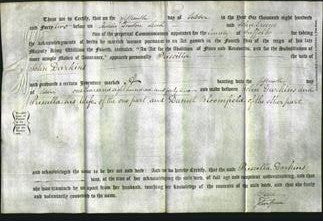 These are to Certify, that on the fifteenth day of October in the Year One thousand eight hundred
and forty two before
two of the perpetual Commissioners appointed for the County of Suffolk for
taking the acknowledgments of deeds by married women pursuant to an Act passed in the Fourth Year of the reign of his late
Majesty King William the Fourth, intituled "An Act for the Abolition of Fines and Recoveries, and for the Substitution of
more simple Modes of Assurance," appeared personally Priscilla the wife of
John Darkins
and produced a certain Indenture marked bearing date the
day of one thousand eight hundred and forty two and made between John Darkins and
Priscilla his wife of the one part and Daniel Bloomfield of the other part
and acknowledged the same to be her act and deed: And we do hereby Certify, that the said Priscilla Darkins
was, at the time of her acknowledging the said deed, of full age and competent understanding, and that
she was examined by us apart from her husband, touching her knowledge of the contents of the said deed, and that she freely
and voluntarily consented to the same.